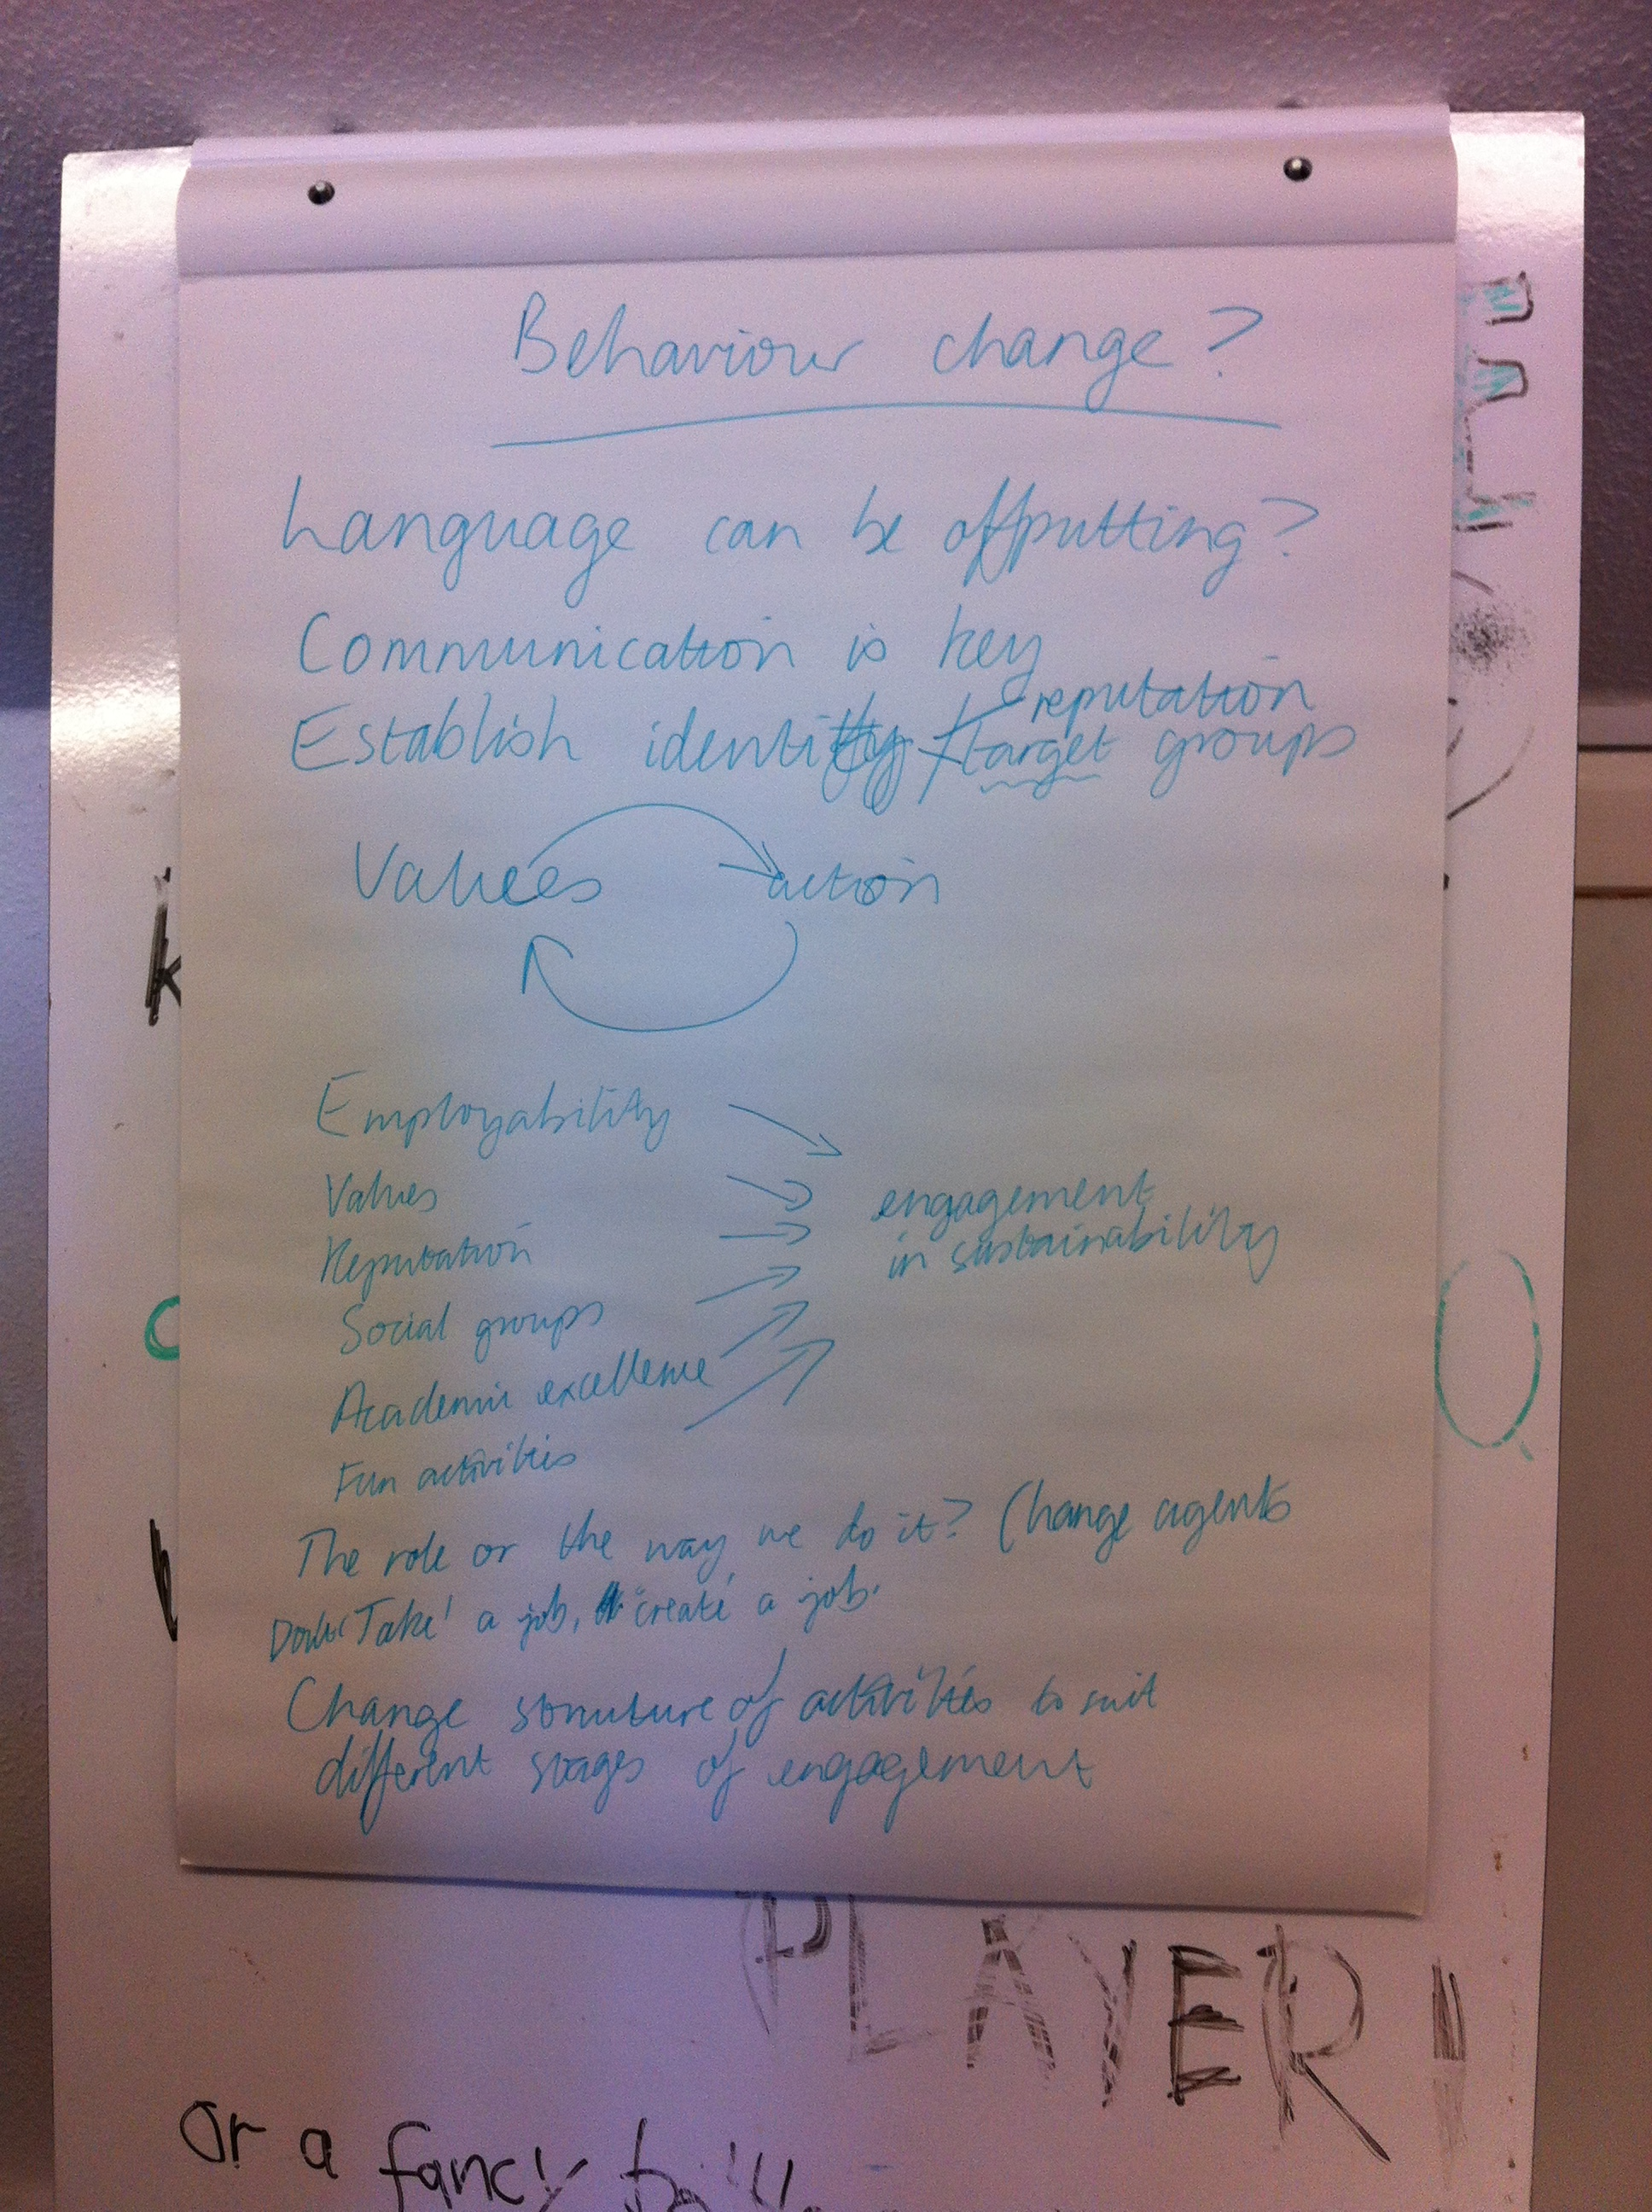 Behaviour change?
Language can be offputting?
Communication is key
reputation
Establish identity / target groups
Values action
Employability
Values
Reputation
Social groups
Academic excellence
Fun activities
engagement
in sustainability
The role or the way we do it? Change agents
Don't 'Take' a job, 'create' a job.
Change structure of activities to suit
different stages of engagement
PLAYER
or a fancy